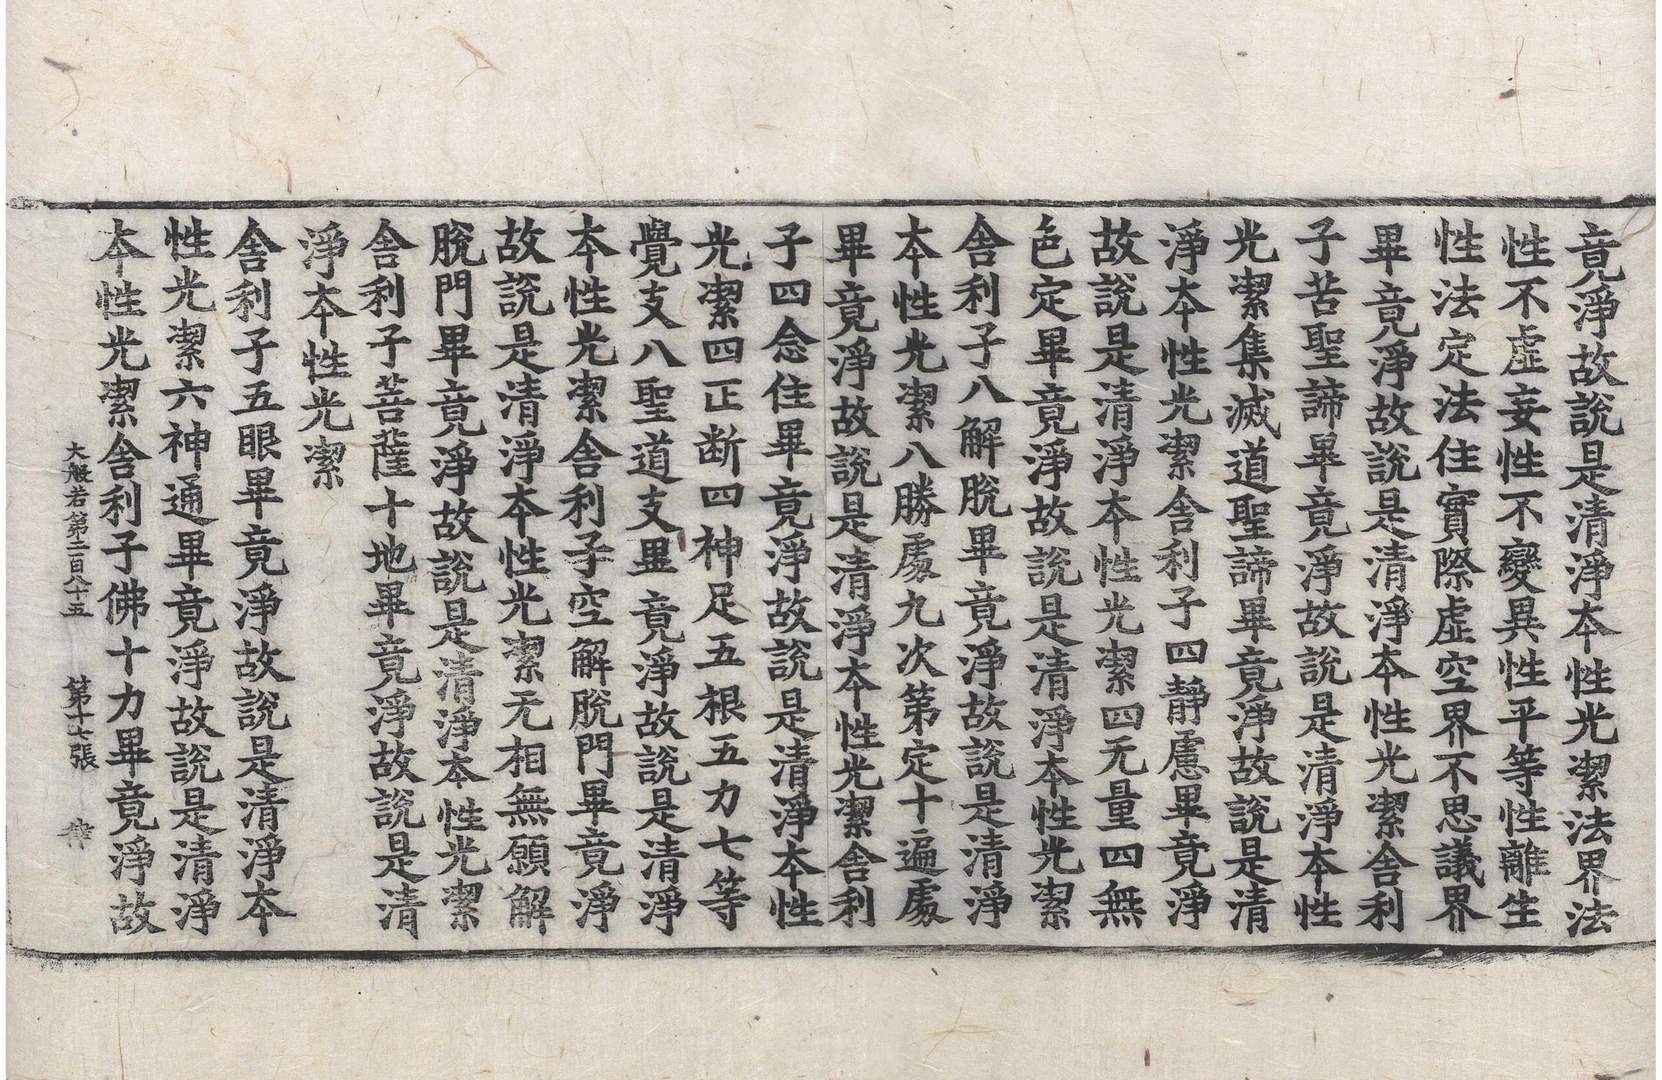 竟淨故說是清淨本性光潔法界法
性不虛妄性不變異性平等性離生
性法定法住實際虛空界不思議界
畢竟淨故說是清淨本性光潔舎利
子苦聖諦畢竟淨故說是清淨本性
光潔集滅道聖諦畢竟淨故說是清
淨本性光潔舎利子四靜慮畢竟淨
故說是清淨本性光潔四无量四無
色定畢竟淨故說是清淨本性光潔
舎利子八解脫畢竟淨故說是清淨
本性光潔八勝處九次第定十遍處
畢竟淨故說是清淨本性光潔舎利
子四念住畢竟淨故說是清淨本性
光潔四正断四神足五根五力七等
覺支八聖道支畢竟淨故說是清淨
本性光潔舎利子空解脫門畢竟淨
故說是清淨本性光潔无相無願解
脫門畢竟淨故說是清淨本性光潔
舎利子菩薩十地畢竟淨故說是清
淨本性光潔
舎利子五眼畢竟淨故說是清淨本
性光潔六神通畢竟淨故說是清淨
本性光潔舎利子佛十力畢竟淨故
大般若第二百八十五 第十七張